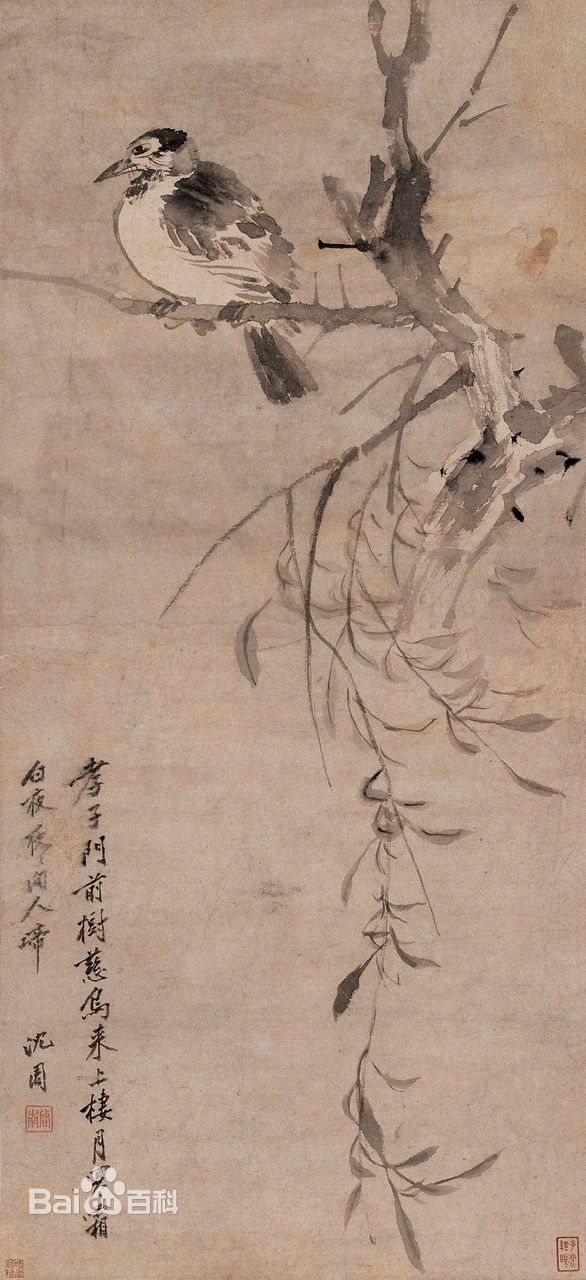 孝子門前樹慈烏来上棲月寒霜
白夜聞人啼
沈周
啓南
Bai 百科